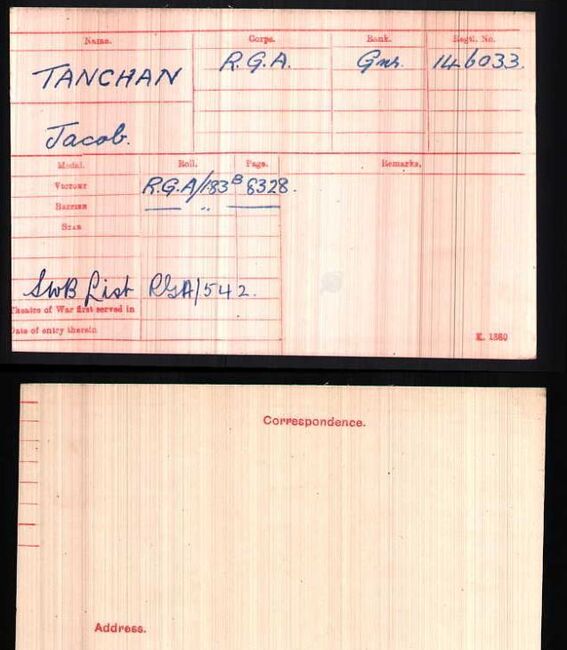 Name. Corps. Rank. Regtl. No.
TANCHAN R.G.A. Gnr. 146033.
Jacob.
Medal. Roll. Page. Remarks.
VICTORY R.G.A/183B 8328.
BRITISH — " —
STAR
SWB List RGA/542.
Theatre of War first served in
Date of entry therein
K. 1380
Correspondence.
Address.